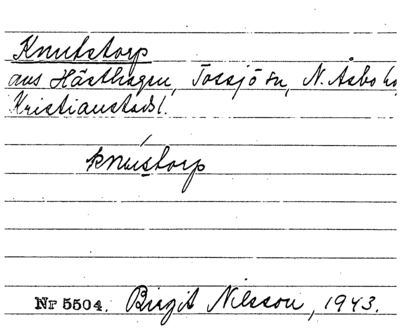 Knutstorp
avs Hästhagen, Tossjö sn, N. Åsbo hd,
Kristianstads l.
knu̇storp
Nr 5504. Birgit Nilsson, 1943.